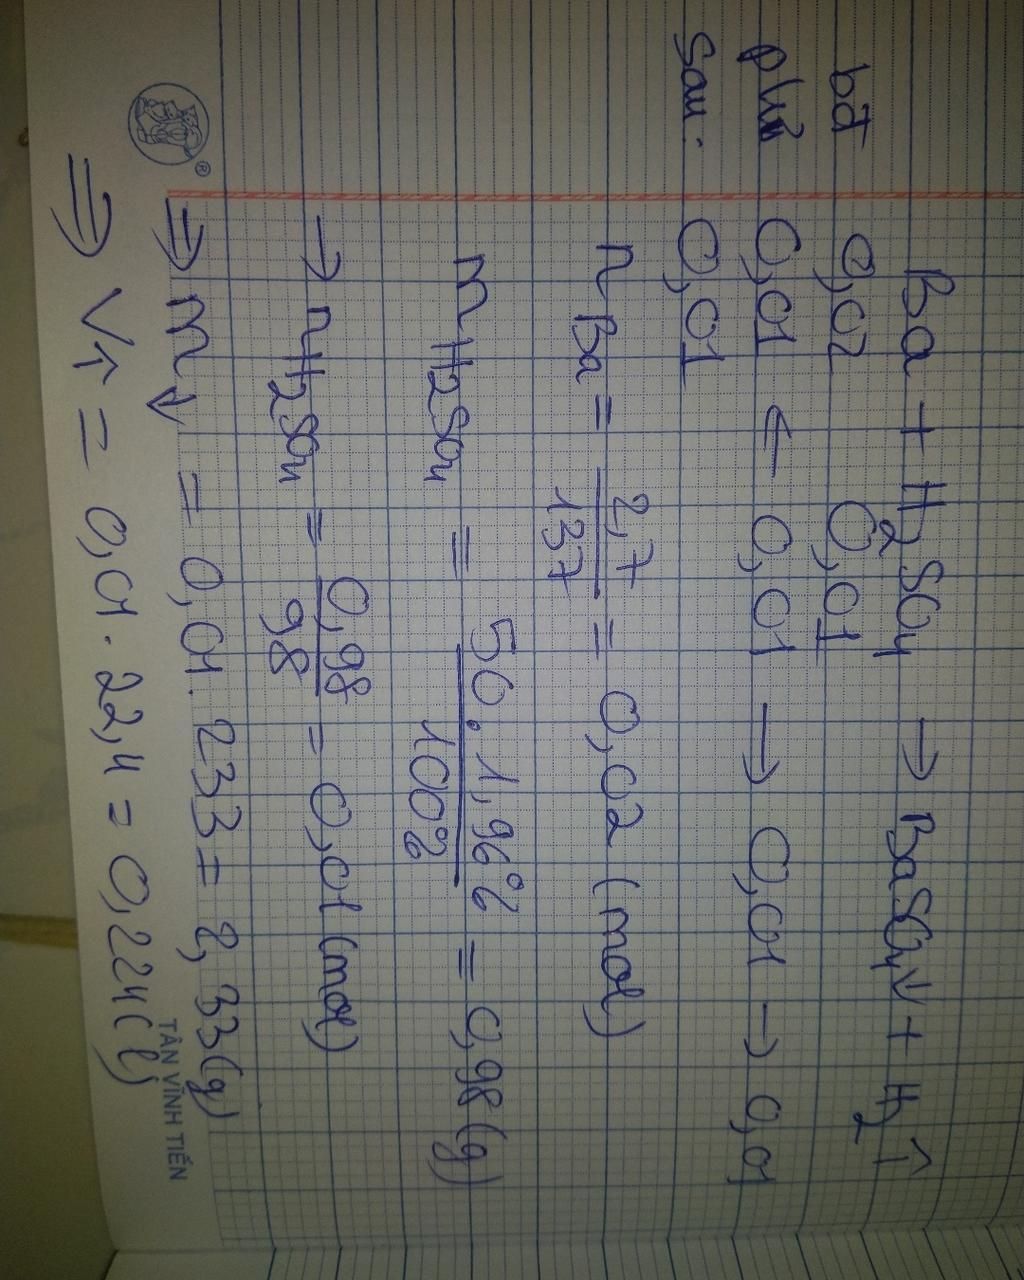 Ba + H₂SO₄ → BaSO₄↓ + H₂↑
bđ 0,02 0,01
phứ 0,01 ← 0,01 → 0,01 → 0,01
Sau: 0,01
n Ba = 2,7/137 = 0,02 (mol)
m H₂SO₄ = 50.1,96%/100% = 0,98 (g)
→ n H₂SO₄ = 0,98/98 = 0,01 (mol)
⇒ m↓ = 0,01. 233 = 2,33 (g)
⇒ V↑ = 0,01. 22,4 = 0,224 (l)
®
TÂN VĨNH TIẾN